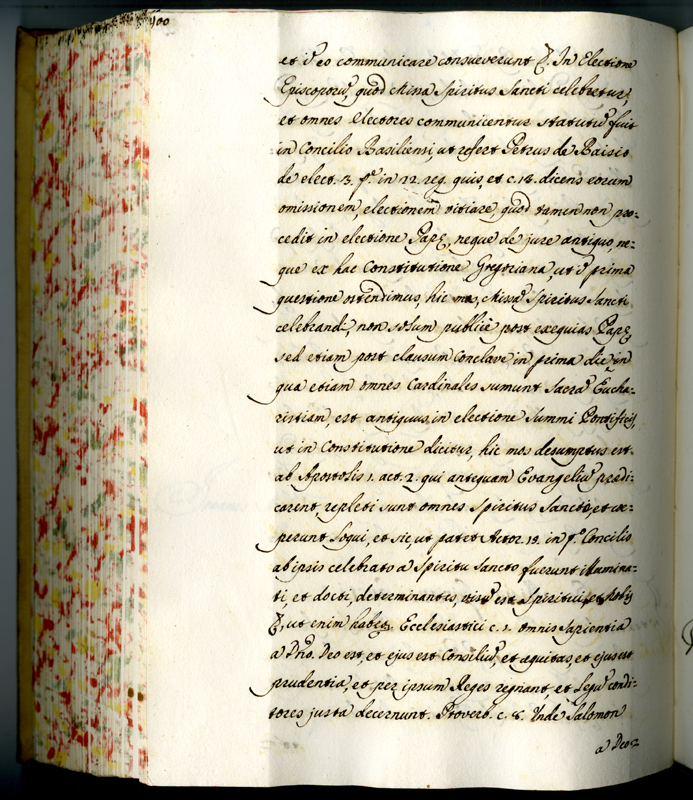 100
et i͂ eo communicare consueverunt &. In Electione
Episcoporu͂, quod Missa Spiritus Sancti celebretur,
et omnes electores communicentur statutu͂ fuit
in Concilio Basiliensi, ut refert Petrus de Baisio
de elect. 3. p.ᵉ in 12. reg. quis, et c. 18. dicens eorum
omissionem, electionem vitiare, quod tamen non pro=
cedit in electione Papę, neque de jure antiquo, ne=
que ex hac Constitutione Gregoriana, ut i͂ prima
questione ostendimus, hic mos, Missa͂ Spiritus Sancti
celebrandi, non solum publice post exequias Papę,
sed etiam post clausum Conclave in prima die in
qua etiam omnes Cardinales sumunt Sacra͂ Eucha=
ristiam, est antiquus, in electione Summi Pontificis,
ut in Constitutione dicitur, hic mos desumptus est
ab Apostolis 1. act. 2. qui antequam Evangeliu͂ prędi=
carent, repleti sunt omnes Spiritus Sancto, et cæ=
perunt loqui, et sic, ut patet Actor. 15. in p.º Concilio
ab ipsis celebrato a Spiritu Sancto fuerunt illumina=
ti, et docti, determinantes, visu͂ est Spiritui, et nobis
&, ut enim habet͂ Ecclesiastici c. 1. omnis sapientia
a Dn͂o Deo est, et ejus est Consiliu͂, et æquitas, et ejus est
prudentia, et per ipsum Reges regnant et Legu͂ condi=
tores justa decernunt. Proverb. c. 8. Unde Salomon
a Deo